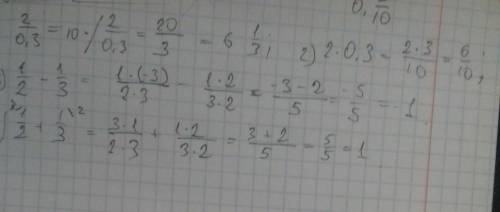 0, /10
2/0,3 = 10 · 2/0,3 = 20/3 = 6 1/3; 2) 2 · 0,3 = 2·3/10 = 6/10;
) 1/2 - 1/3 = 1·(-3)/2·3 - 1·2/3·2 = -3-2/5 = -5/5 = -1
1/2 + 1/3 \2 = 3·1/2·3 + 1·2/3·2 = 3+2/5 = 5/5 = 1